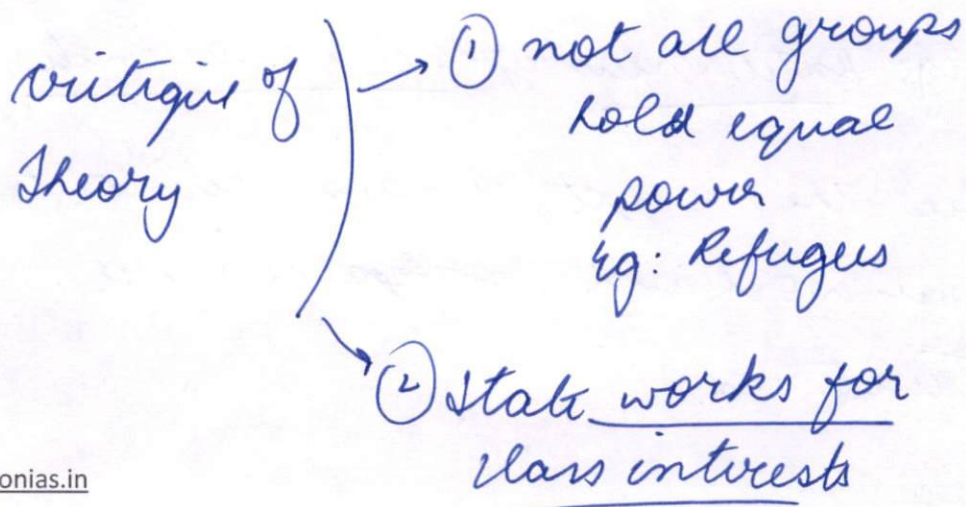 critique of
Theory
① not all groups
hold equal
power
eg: Refugees
② State works for
class interests
onias.in